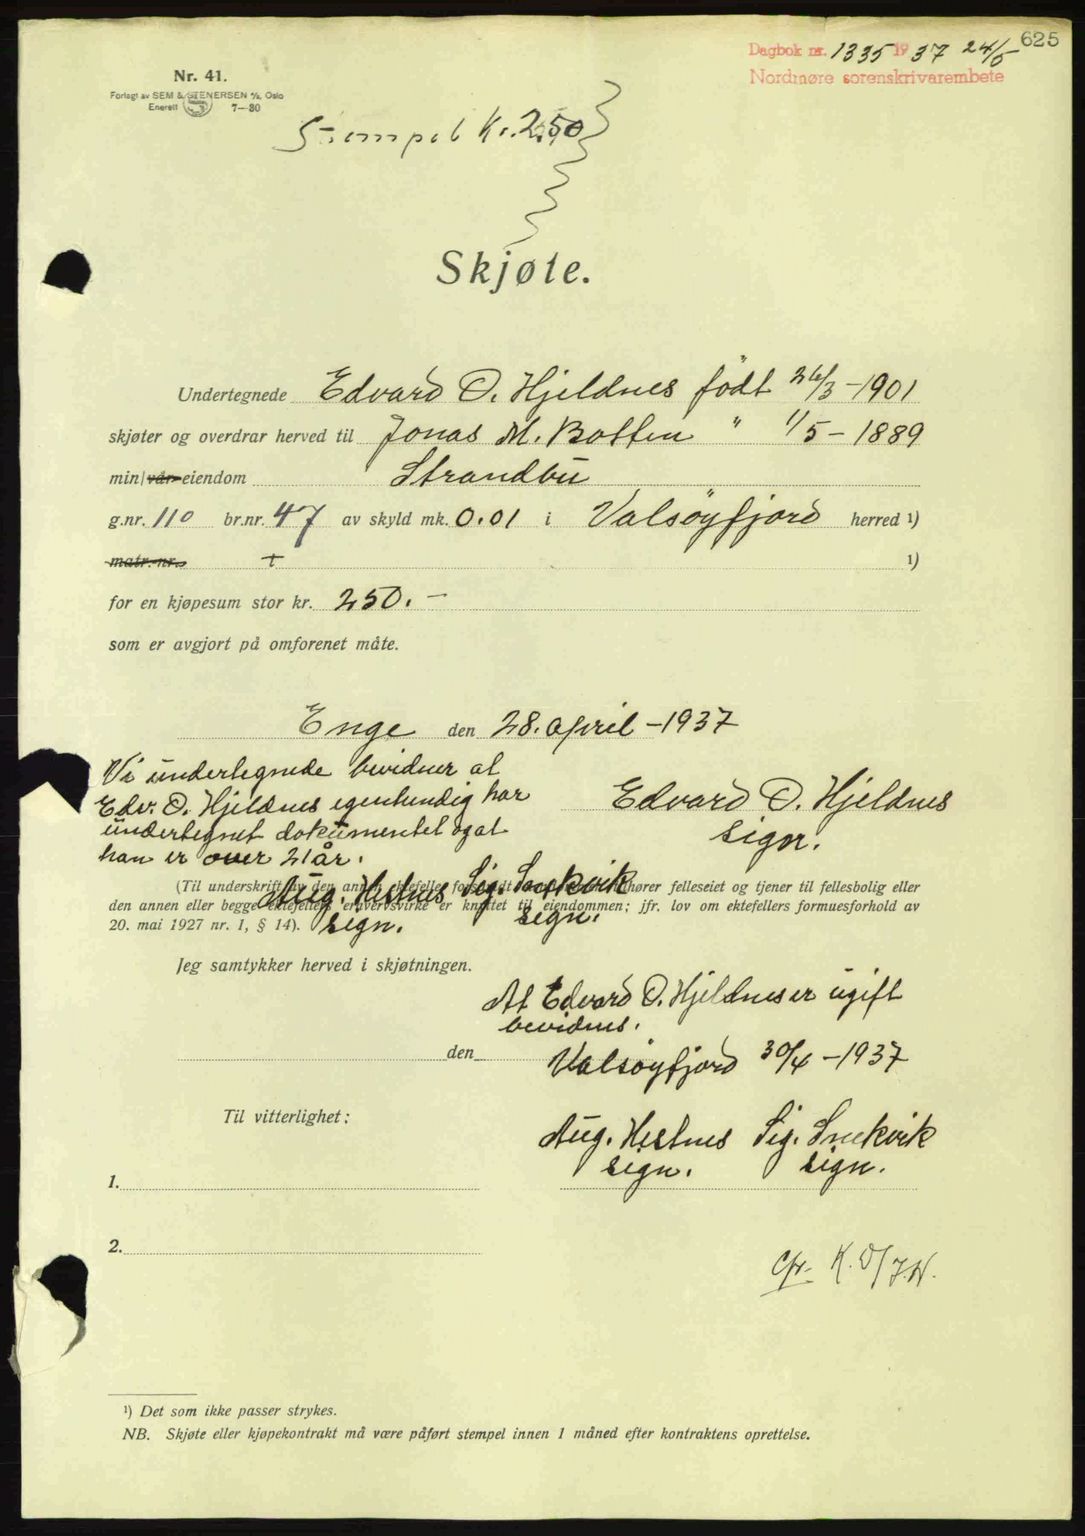 625
Dagbok nr. 1335 1937 24/5
Nordmøre sorenskrivarembete
Nr. 41.
Forlagt av SEM & STENERSEN A/S, Oslo
Enerett 7—30
Stempel kr. 2.50
Skjøte.
Undertegnede Edvard O. Hjeldnes født 26/3 - 1901
skjøter og overdrar herved til Jonas M. Botten " 1/5 - 1889
min/vår eiendom Strandbu
g.nr. 110 br.nr. 47 av skyld mk. 0.01 i Valsøyfjord herred ¹)
matr.-nr. ¹)
for en kjøpesum stor kr. 250.-
som er avgjort på omforenet måte.
Enge den 28. april - 1937
Vi undertegnede bevidner at
Edv. O. Hjeldnes egenhendig har
undertegnet dokumentet og at
han er over 21 år.
Edvard O. Hjeldnes
sign.
(Til underskrift av den annen ektefelle forsåvidt hører felleseiet og tjener til fellesbolig eller
den annen eller begge ektefellers erhvervsvirke er knyttet til eiendommen; jfr. lov om ektefellers formuesforhold av
20. mai 1927 nr. 1, § 14).
Aug. Hestnes Sig. Snekvik
sign. sign.
Jeg samtykker herved i skjøtningen.
At Edvard O. Hjeldnes er ugift
bevidnes.
den
Valsøyfjord 30/4 - 1937
Til vitterlighet:
Aug. Hestnes Sig. Snekvik
sign. sign.
1.
2.
Cfr. K. O/J.N.
¹) Det som ikke passer strykes.
NB. Skjøte eller kjøpekontrakt må være påført stempel innen 1 måned efter kontraktens oprettelse.